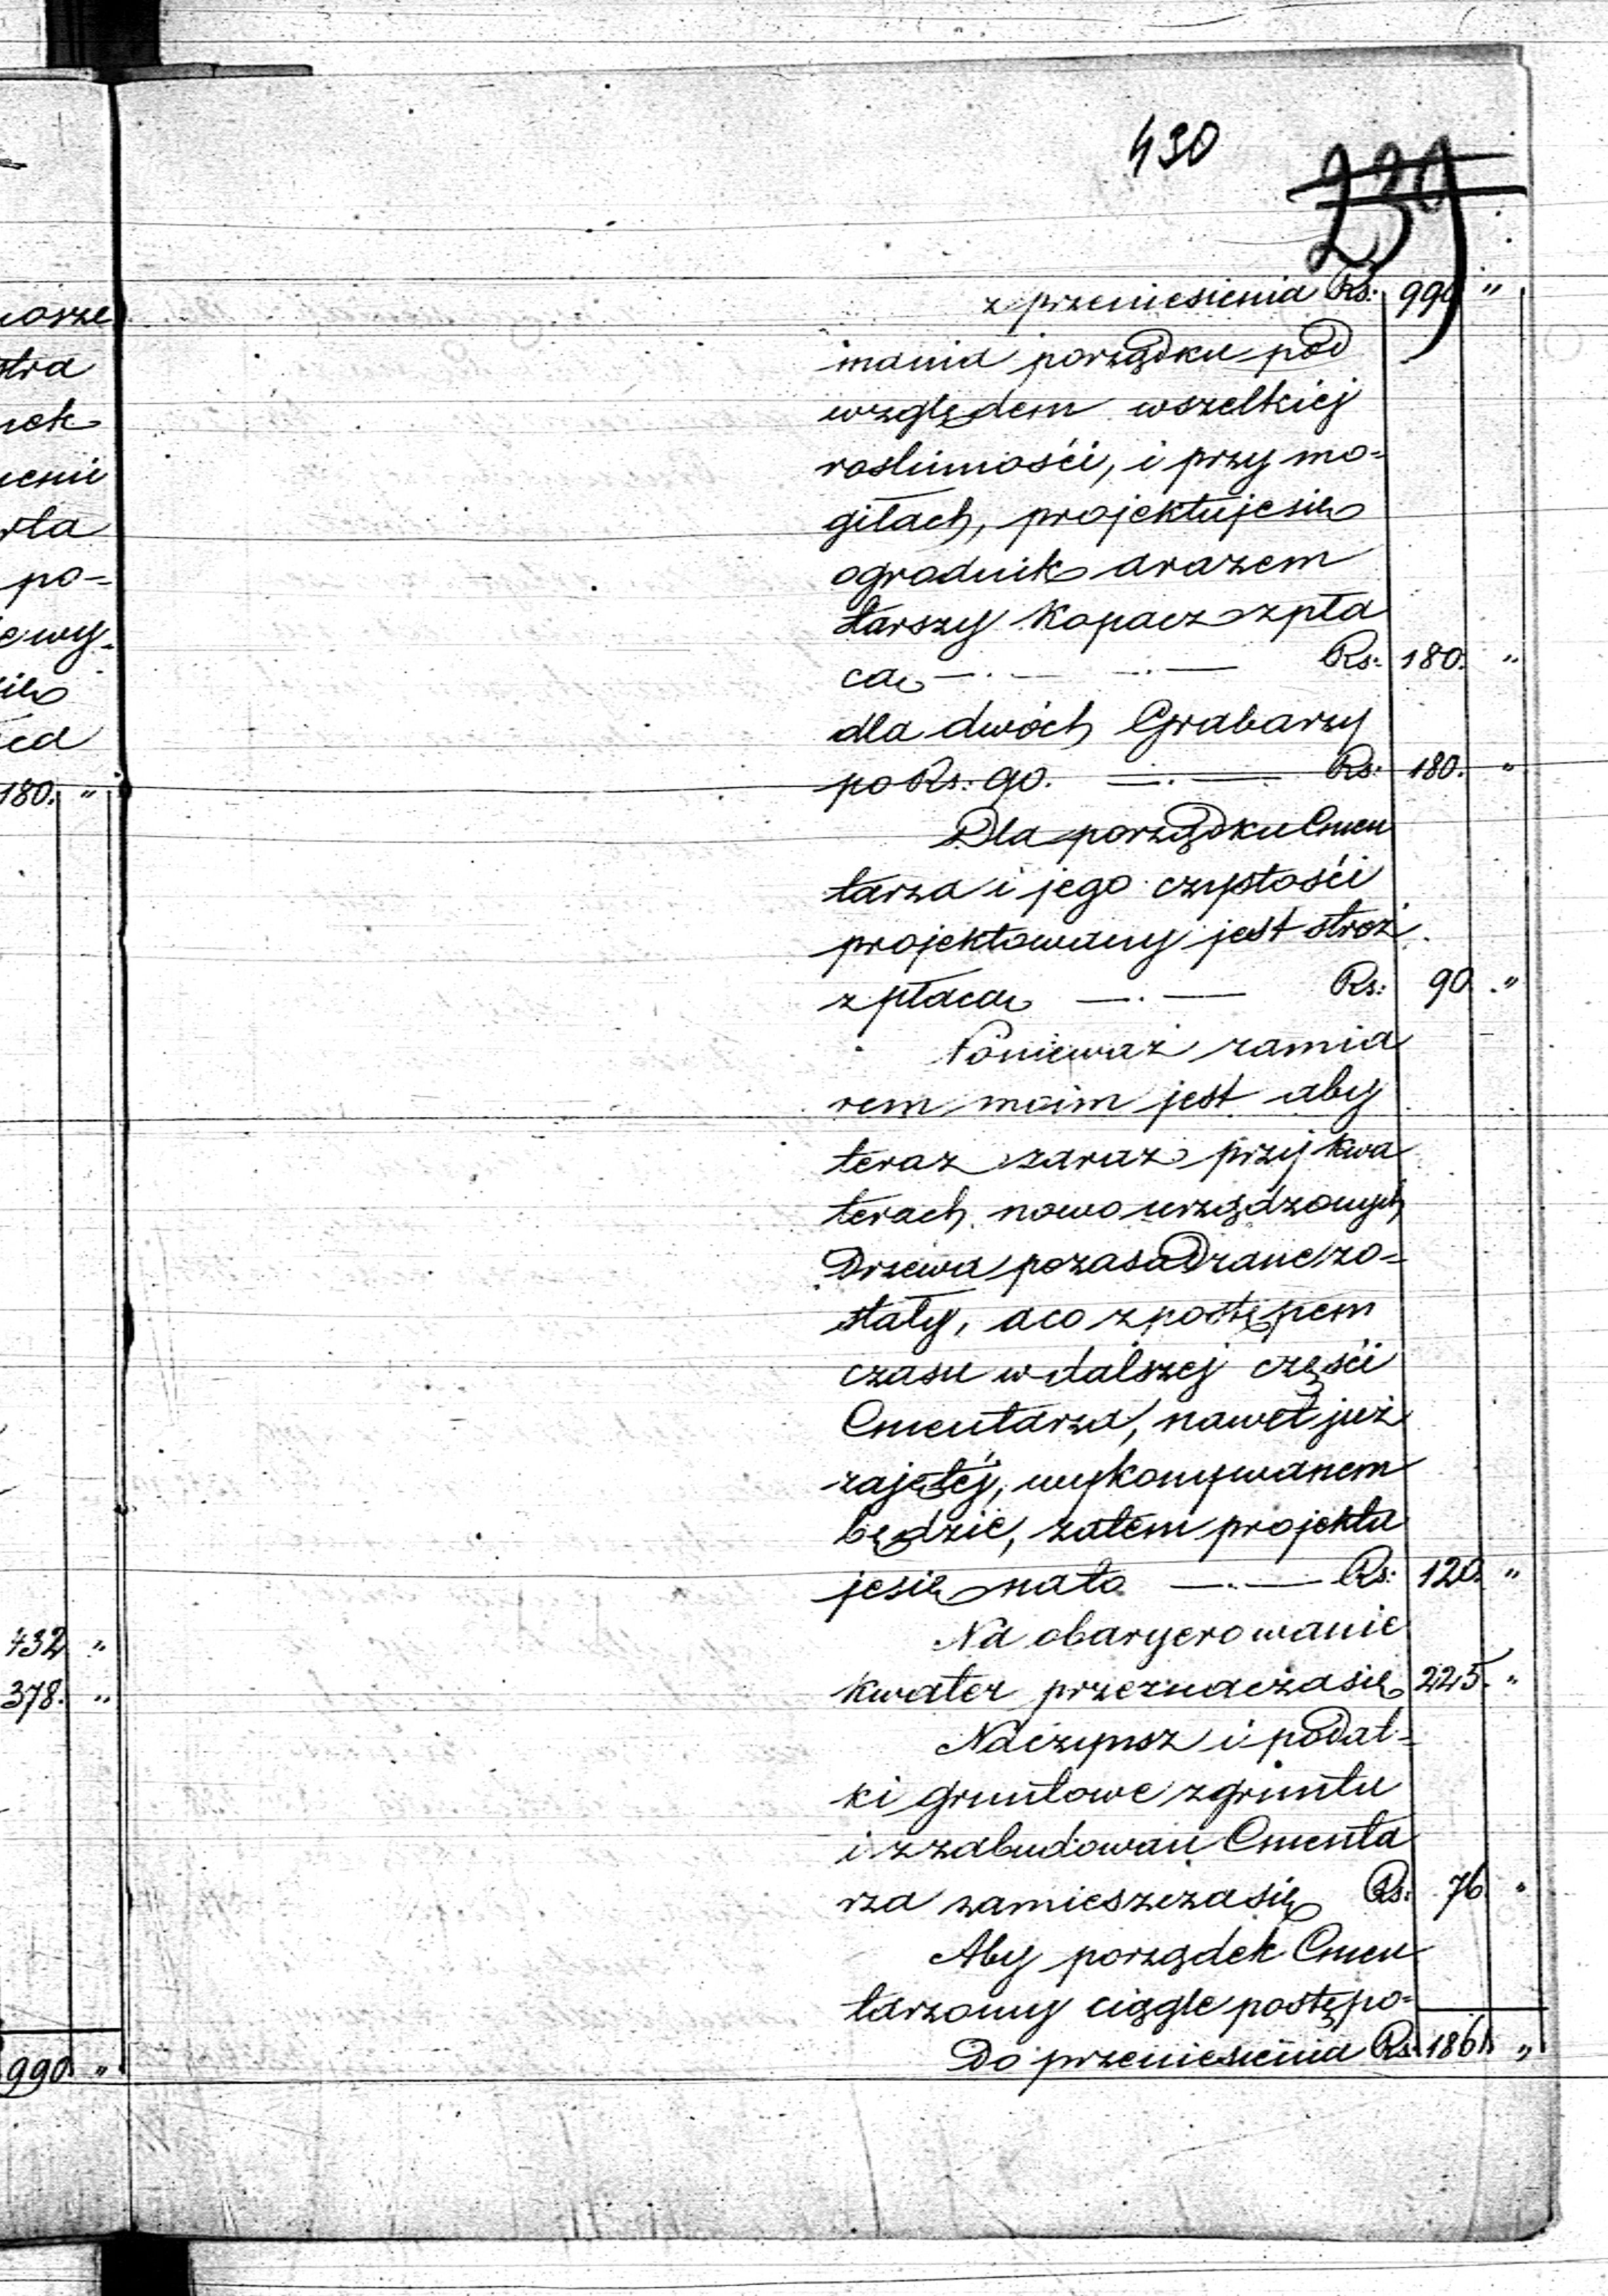 430
239
z przeniesienia Rs: 990 "
mania porządku pod
względem wszelkiéj
roslinności, i przy mo-
giłach, projektuje się
ogrodnik a razem
starszy Kopacz z pła
cą —.— —.— Rs: 180. "
dla dwóch Grabarzy
po Rs: 90. —.— Rs: 180. "
Dla porządku Cmen
tarza i jego czystości
projektowany jest stroż
z płacą —.— Rs: 90. "
Ponieważ zamia
rem moim jest aby
teraz zaraz przy kwa
terach nowo urządzonych
Drzewa pozasadzane zo-
stały, a co z postępem
czasu w dalszej części
Cmentarza, nawet już
zajętéj, wykonywanem
będzie, zatem projektu
je się na to —.— Rs: 120. "
Na obaryerowanie
kwater przeznacza się 225. "
Na czynsz i podat-
ki gruntowe z gruntu
i z zabudowań Cmenta
rza zamieszcza się Rs: 76. "
Aby porządek Cmen
tarzowy ciągle postępo-
Do przeniesienia Rs 1861. "
nosze
stra
nek
rta
po-
wy-
180. "
432 "
378. "
990. "